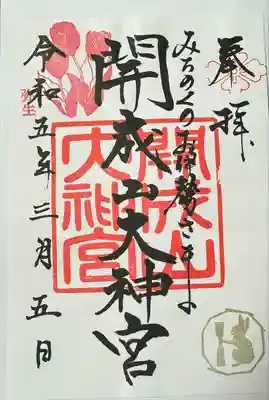 奉拝
みちのくのお伊勢さま
開成山大神宮
開成山
大神宮
弥生
令和五年三月五日